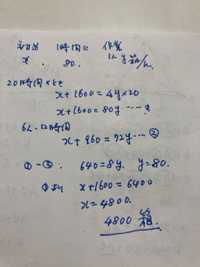 1時間に
x 80.
20時間
x+1600=4y×20
x+1600=80y ……①
6人.12時間
x+960=72y……②
①−②: 640=8y. y=80.
①より x+1600=6400
x=4800.
4800箱.